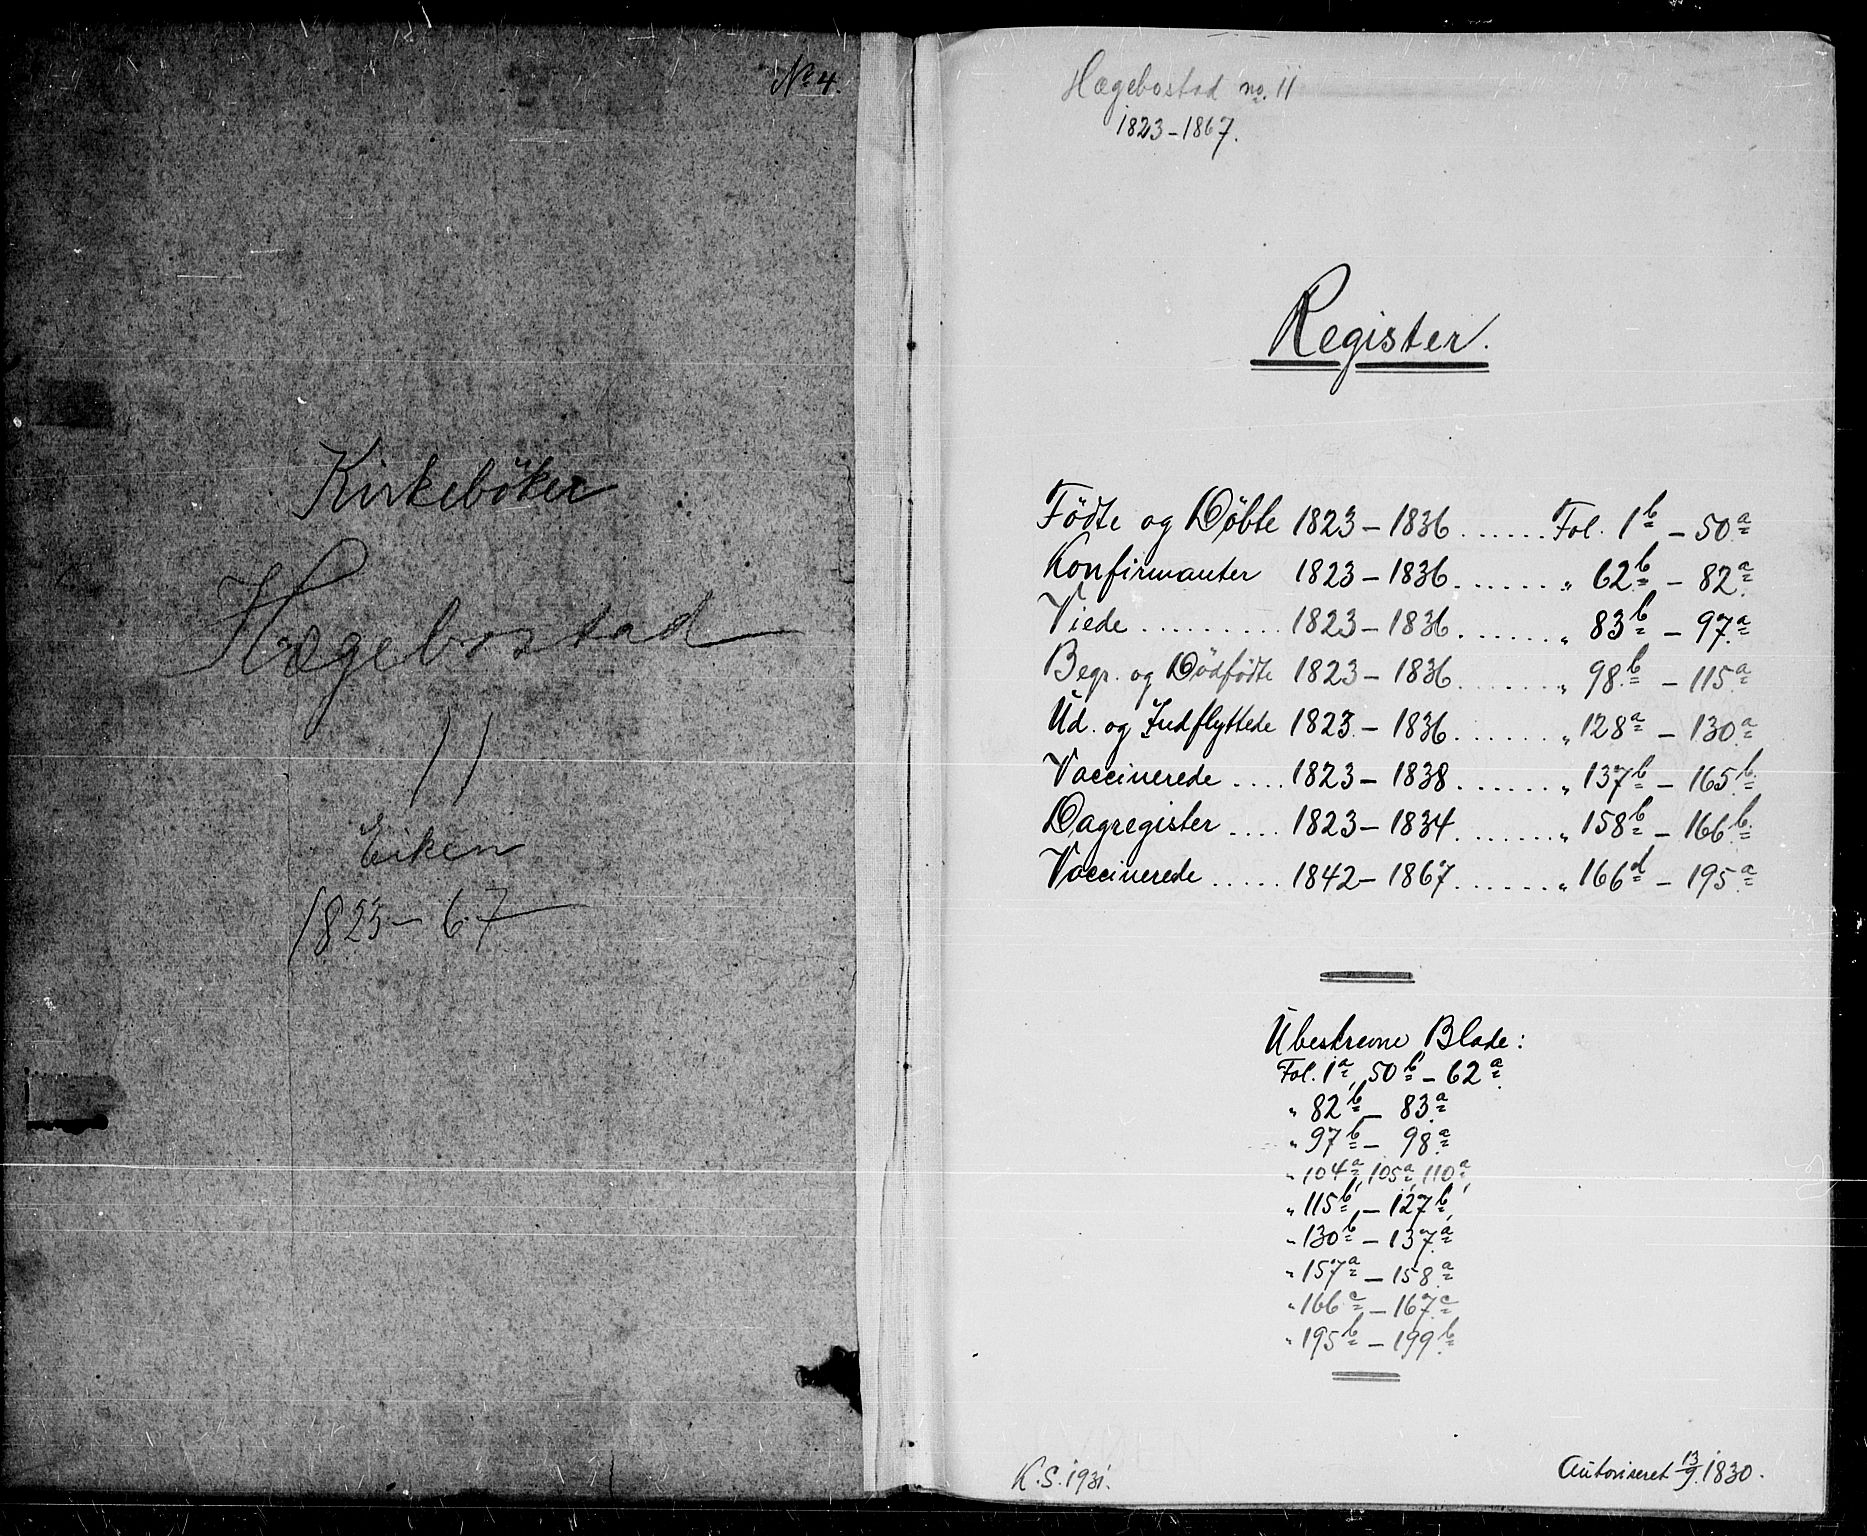 No 4.
Kirkebøker
Hægebostad
11
Eiken
1823-67
Hægebostad no. 11
1823-1867.
Register.
Fødte og Døbte 1823-1836 ...... Fol. 1b - 50a
Konfirmanter 1823-1836 ....... " 62b - 82a
Viede .......... 1823-1836 ....... " 83b - 97a
Begr. og Dødfødte 1823-1836 ....... " 98b - 115a
Ud. og Indflyttede 1823-1836 ....... " 128a - 130a
Vaccinerede .... 1823-1838 ....... " 137b - 165b
Dagregister .... 1823-1834 ....... " 158b - 166b
Vaccinerede ..... 1842-1867 ....... " 166d - 195a
Ubeskrevne Blade:
Fol. 1a, 50b - 62a
" 82b - 83a
" 97b - 98a
" 104a, 105a, 110a,
" 115b - 127b,
" 130b - 137a
" 157a - 158a
" 166c - 167c
" 195b - 199b
K.S. 1931.
Autoriseret 13/9 1830.